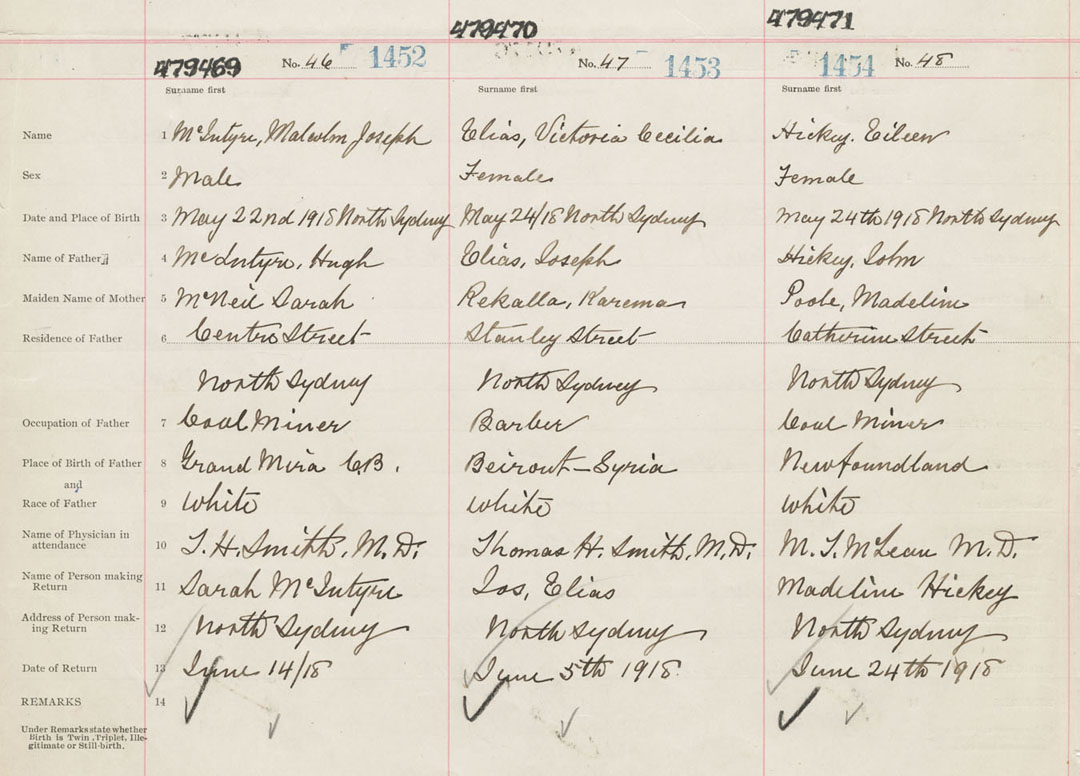 479470
479471
479469 No. 46 1452 No. 47 1453 1454 No. 48
Surname first Surname first Surname first
Name 1 McIntyre, Malcolm Joseph Elias, Victoria Cecilia Hickey. Eileen
Sex 2 Male Female Female
Date and Place of Birth 3 May 22nd 1918 North Sydney May 24/18 North Sydney May 24th 1918 North Sydney
Name of Father 4 McIntyre, Hugh Elias, Joseph Hickey, John
Maiden Name of Mother 5 McNeil Sarah Rekalla, Karema Poole, Madeline
Residence of Father 6 Centre Street Stanley Street Catherine Street
North Sydney North Sydney North Sydney
Occupation of Father 7 Coal Miner Barber Coal Miner
Place of Birth of Father 8 Grand Mira C.B. Beirout-Syria Newfoundland
and
Race of Father 9 White White White
Name of Physician in
attendance 10 T. H. Smith, M.D. Thomas H. Smith, M.D. M. T. McLean M.D.
Name of Person making
Return 11 Sarah McIntyre Jos, Elias Madeline Hickey
Address of Person mak-
ing Return 12 North Sydney North Sydney North Sydney
Date of Return 13 June 14/18 June 5th 1918 June 24th 1918
REMARKS 14
Under Remarks state whether
Birth is Twin, Triplet, Ille-
gitimate or Still-birth.